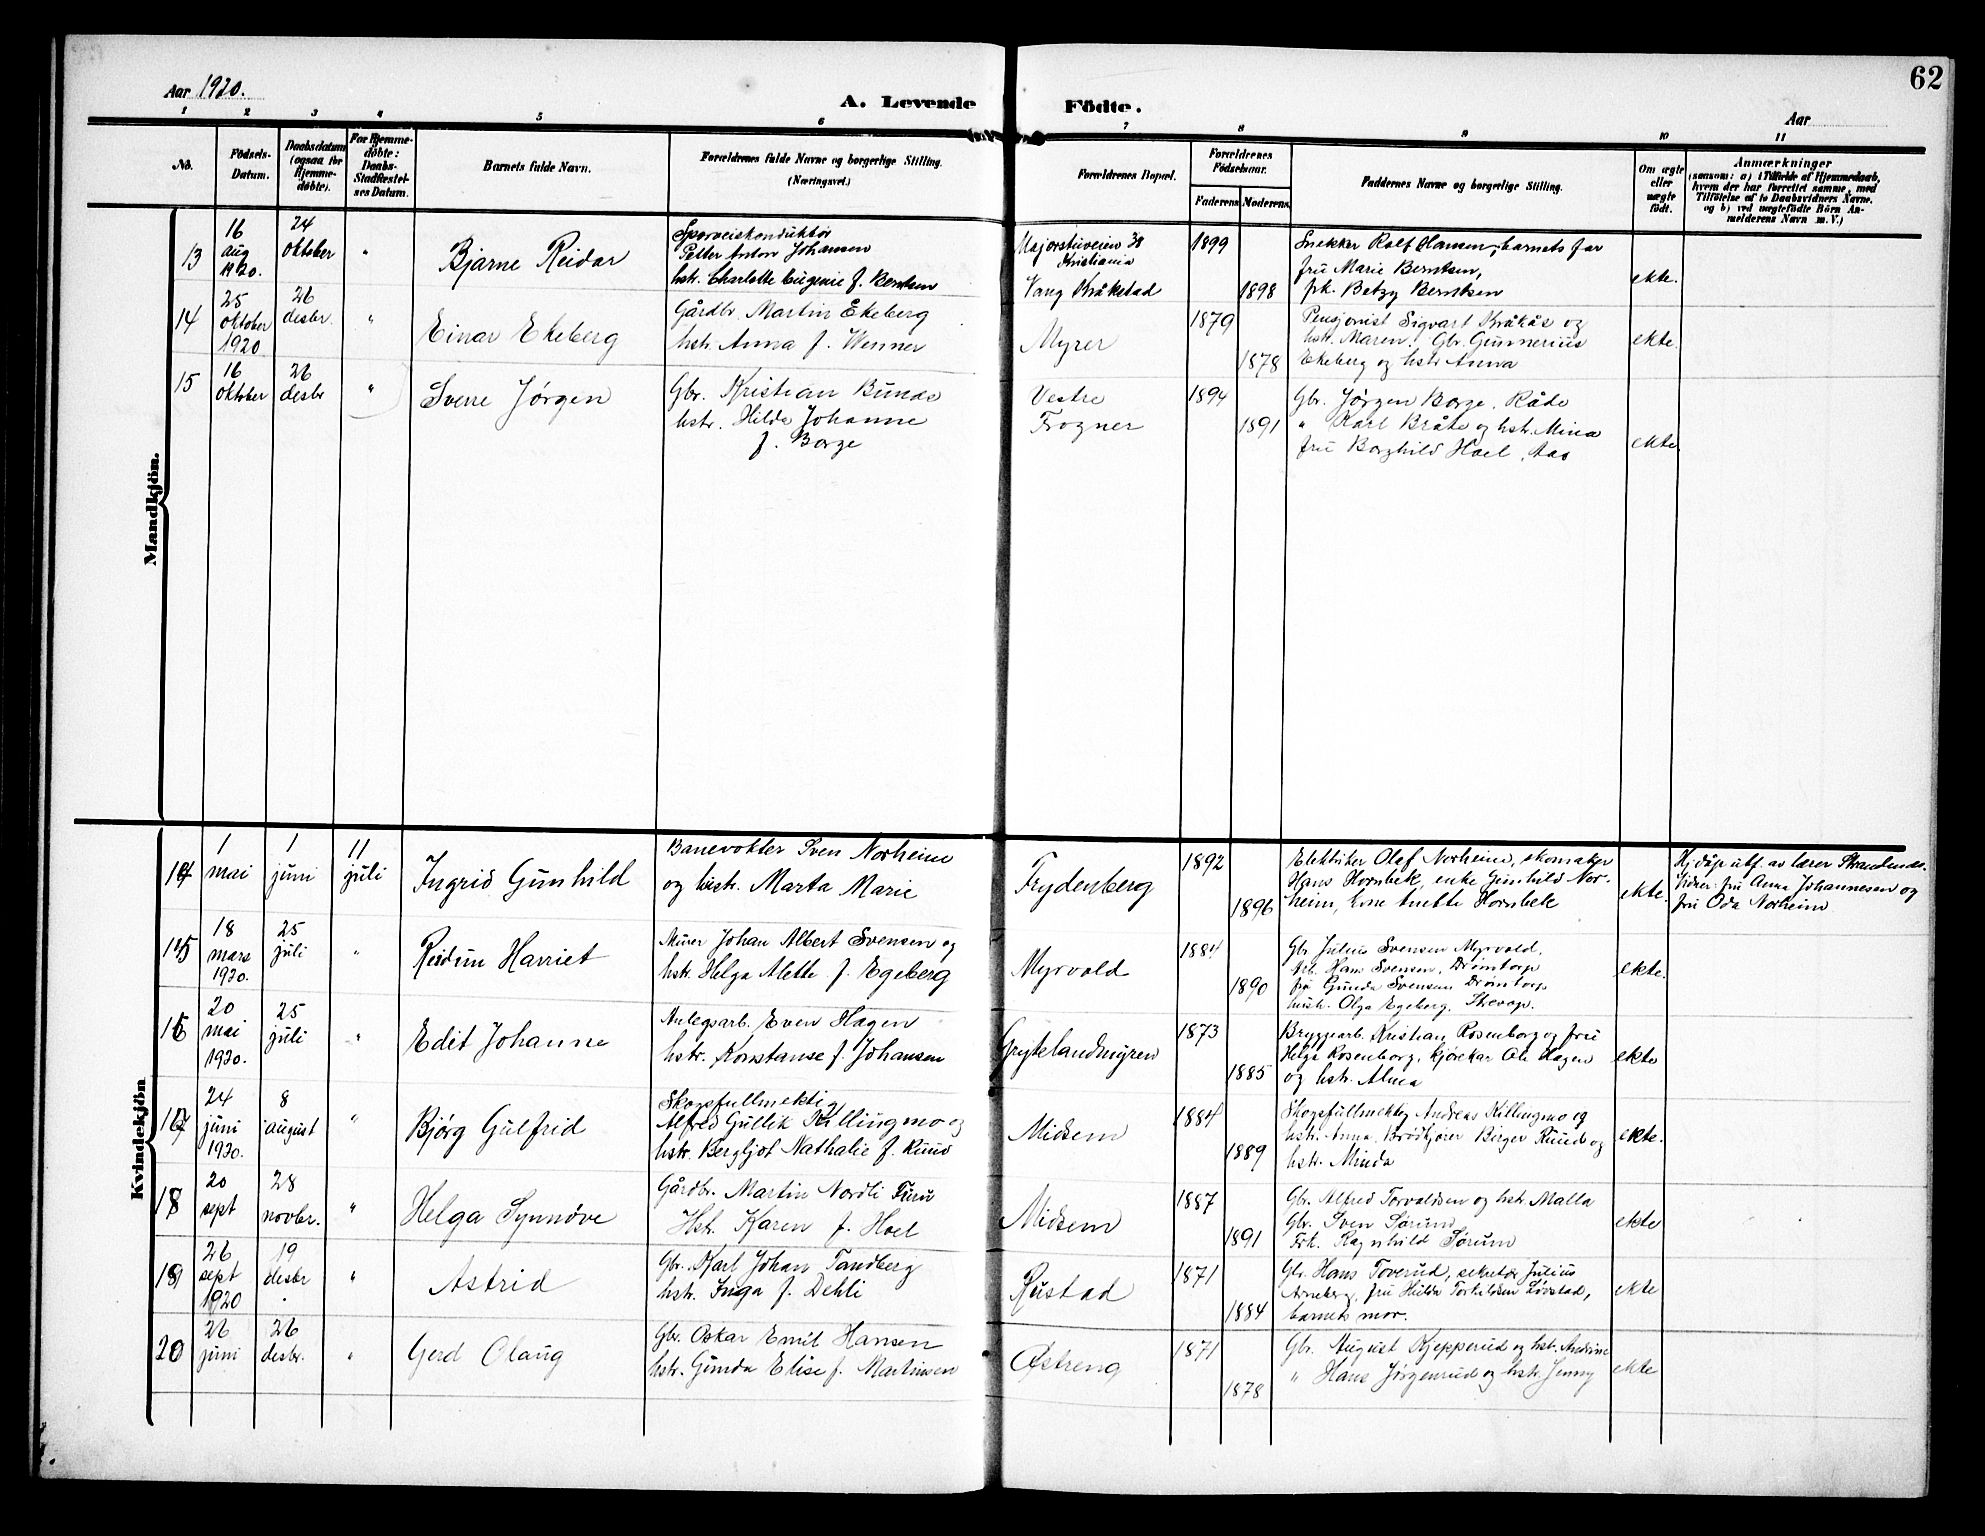 62
Aar 1920.
A. Levende Födte.
Aar
1 2 3 4 5 6 7 8 9 10 11
No.
Födsels-Datum.
Daabsdatum (ogsaa for Hjemmedöbte).
For Hjemmedöbte: Daabs-Stadfæstelses Datum.
Barnets fulde Navn.
Forældrenes fulde Navne og borgerlige Stilling.
(Næringsvei.)
Forældrenes Bopæl.
Forældrenes Födselsaar.
Faderens. Moderens.
Faddernes Navne og borgerlige Stilling.
Om ægte eller uægte födt.
Anmærkninger
(saasom: a) i Tilfælde af Hjemmedaab, hvem der har forrettet samme, med Tilföielse af to Daabsvidners Navne, og b) ved uægtefödte Börn Anmelderens Navn m. V.)
Mandkjön.
13
16 aug 1920.
24 oktober
"
Bjarne Reidar
Sporveiskonduktör
Petter Anton Johansen
hstr. Charlotte Eugenie f. Berntsen
Majorstuveien 38
Kristiania
Vang Kråkstad
1899
1898
Snekker Rolf Hansen, barnets far
fru Marie Berntsen,
frk. Betzy Berntsen
ekte.
14
25 oktober 1920
26 desbr.
"
Einar Ekeberg
Gårdbr. Martin Ekeberg
hstr. Anna f. Wenner
Myrer
1879
1878
Pensjonist Sigvart Kråkås og
hstr. Maren. Gbr. Gunnerius
Ekeberg og hstr Anna
ekte.
15
16 oktober
26 desbr
"
Sverre Jørgen
Gbr. Kristian Bunas
hstr. Hilda Johanne
f. Borge
Vestre
Frogner
1894
1891
Gbr. Jørgen Borge, Råde
" Karl Bråte og hstr. Mina
fru Borghild Hoel, Aas
ekte.
Kvindekjön
14
1 mai
1 juni
11 juli
Ingrid Gunhild
Banevokter Sven Norheim
og hustr. Marta Marie
Frydenberg
1892
1896
Elektriker Olaf Norheim, skomaker
Hans Hornbek, enke Gunhild Nor-
heim, kone Anette Hornbek
ekte.
Hj.døp utf. av lærer
Vidner: fru Anna Johannesen og
fru Oda Norheim
15
18 mars 1920.
25 juli
"
Reidun Harriet
Murer Johan Albert Svensen og
hstr. Helga Alette f. Egeberg
Myrvold
1884
1890
Gbr Julius Svensen Myrvold,
Arb. Hans Svensen, Drømtorp
frø Gunda Svensen Drømtorp
hustr. Olga Egeberg,
ekte.
16
20 mai 1920.
25 juli
"
Edit Johanne
Anlegsarb. Even Hagen
hstr. Konstanse f. Johansen
Grytelandmyren
1873
1885
Bryggearb. Kristian Rosenborg og fru
Helga Rosenborg, kjørekar Ole Hagen
og hstr. Alma
ekte
17
24 juni 1920.
8 august
"
Bjørg Gulfrid
Skogsfullmektig
Alfred Gullik Killingmo og
hstr. Bergljot Nathalie f. Ruud
Midsem
1884
1889
Skogsfullmektig Andreas Killingmo og
hstr. Anna. Brødkjører Birger Ruud og
hstr. Minda
ekte.
18
20 sept
28 novbr.
"
Helga Synnöve
Gårdbr. Martin Nordli Furu
Hstr. Karen f. Hoel
Midsem
1887
1891
Gbr. Alfred Torvaldsen og hstr. Malla
Gbr. Sven Sørum
Frk. Ragnhild Sørum
ekte
19
26 sept 1920
19 desbr
"
Astrid
Gbr. Karl Johan Tandberg
hstr. Inga f. Dehli
Rustad
1871
1884
Gbr. Hans Toverud, sekretær Julius
Arneberg, fru Hilda Torkildsen Løvstad,
barnets mor.
ekte
20
26 juni
26 desbr.
"
Gerd Olaug
Gbr. Oskar Emil Hansen
hstr. Gunda Elise f. Martinsen
Østreng
1871
1878
Gbr. August Kjepperud og hstr. Andrine
" Hans Jørgenrud og hstr. Jenny
ekte